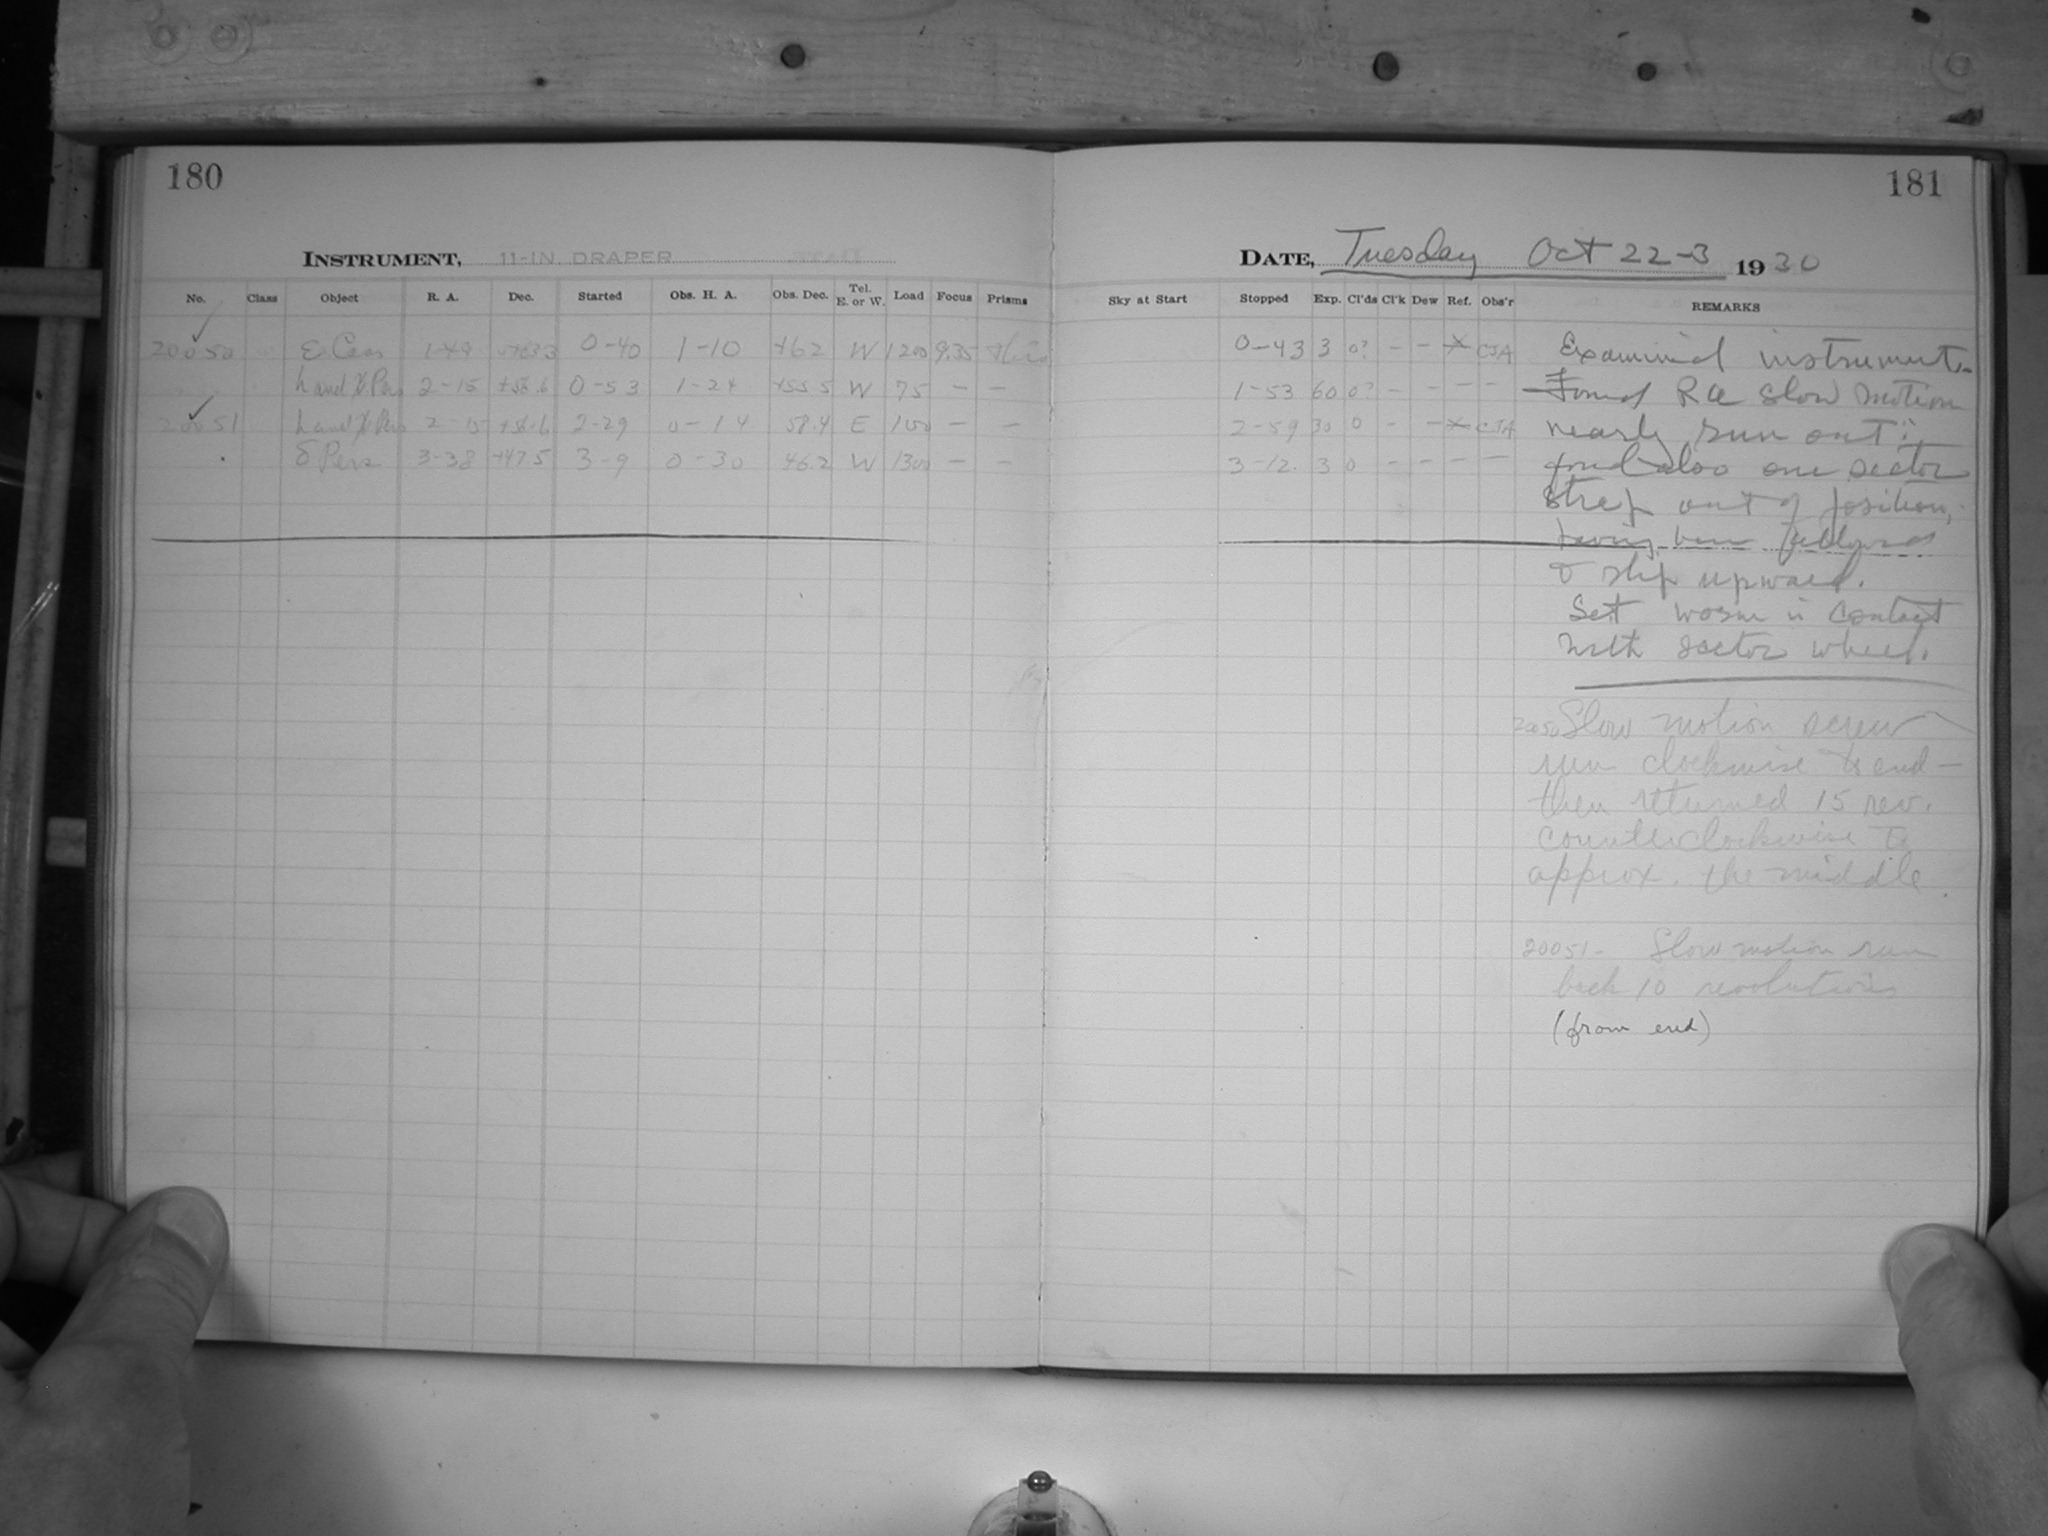 180
INSTRUMENT, 11-IN DRAPER
No. Class Object R. A. Dec. Started Obs. H. A. Obs. Dec. Tel. E. or W. Load Focus Prisms
20050 ε Cass 1-49 +63.3 0-40 1-10 +62 W 1200 9.35
h and χ Pers 2-15 +56.6 0-53 1-24 +55.5 W 75 - -
20051 h and χ Pers 2-15 +56.6 2-29 0-14 58.4 E 100 - -
δ Pers 3-38 +47.5 3-9 0-30 46.2 W 1300 - -
181
DATE, Tuesday Oct 22-3 1930
Sky at Start Stopped Exp. Cl'ds Cl'k Dew Ref. Obs'r REMARKS
0-43 3 0? - - X CJA
1-53 60 0? - - - -
2-59 30 0 - - X CJA
3-12. 3 0 - - - -
Examined instrument.
Found RA slow motion
nearly run out;
found also one sector
strap out of position,
having been
to slip upward.
Set worm in contact
with sector wheel.
20050 Slow motion screw
run clockwise to end -
then returned 15 rev.
counterclockwise to
approx. the middle
20051 - Slow motion run
back 10 revolutions
(from end)